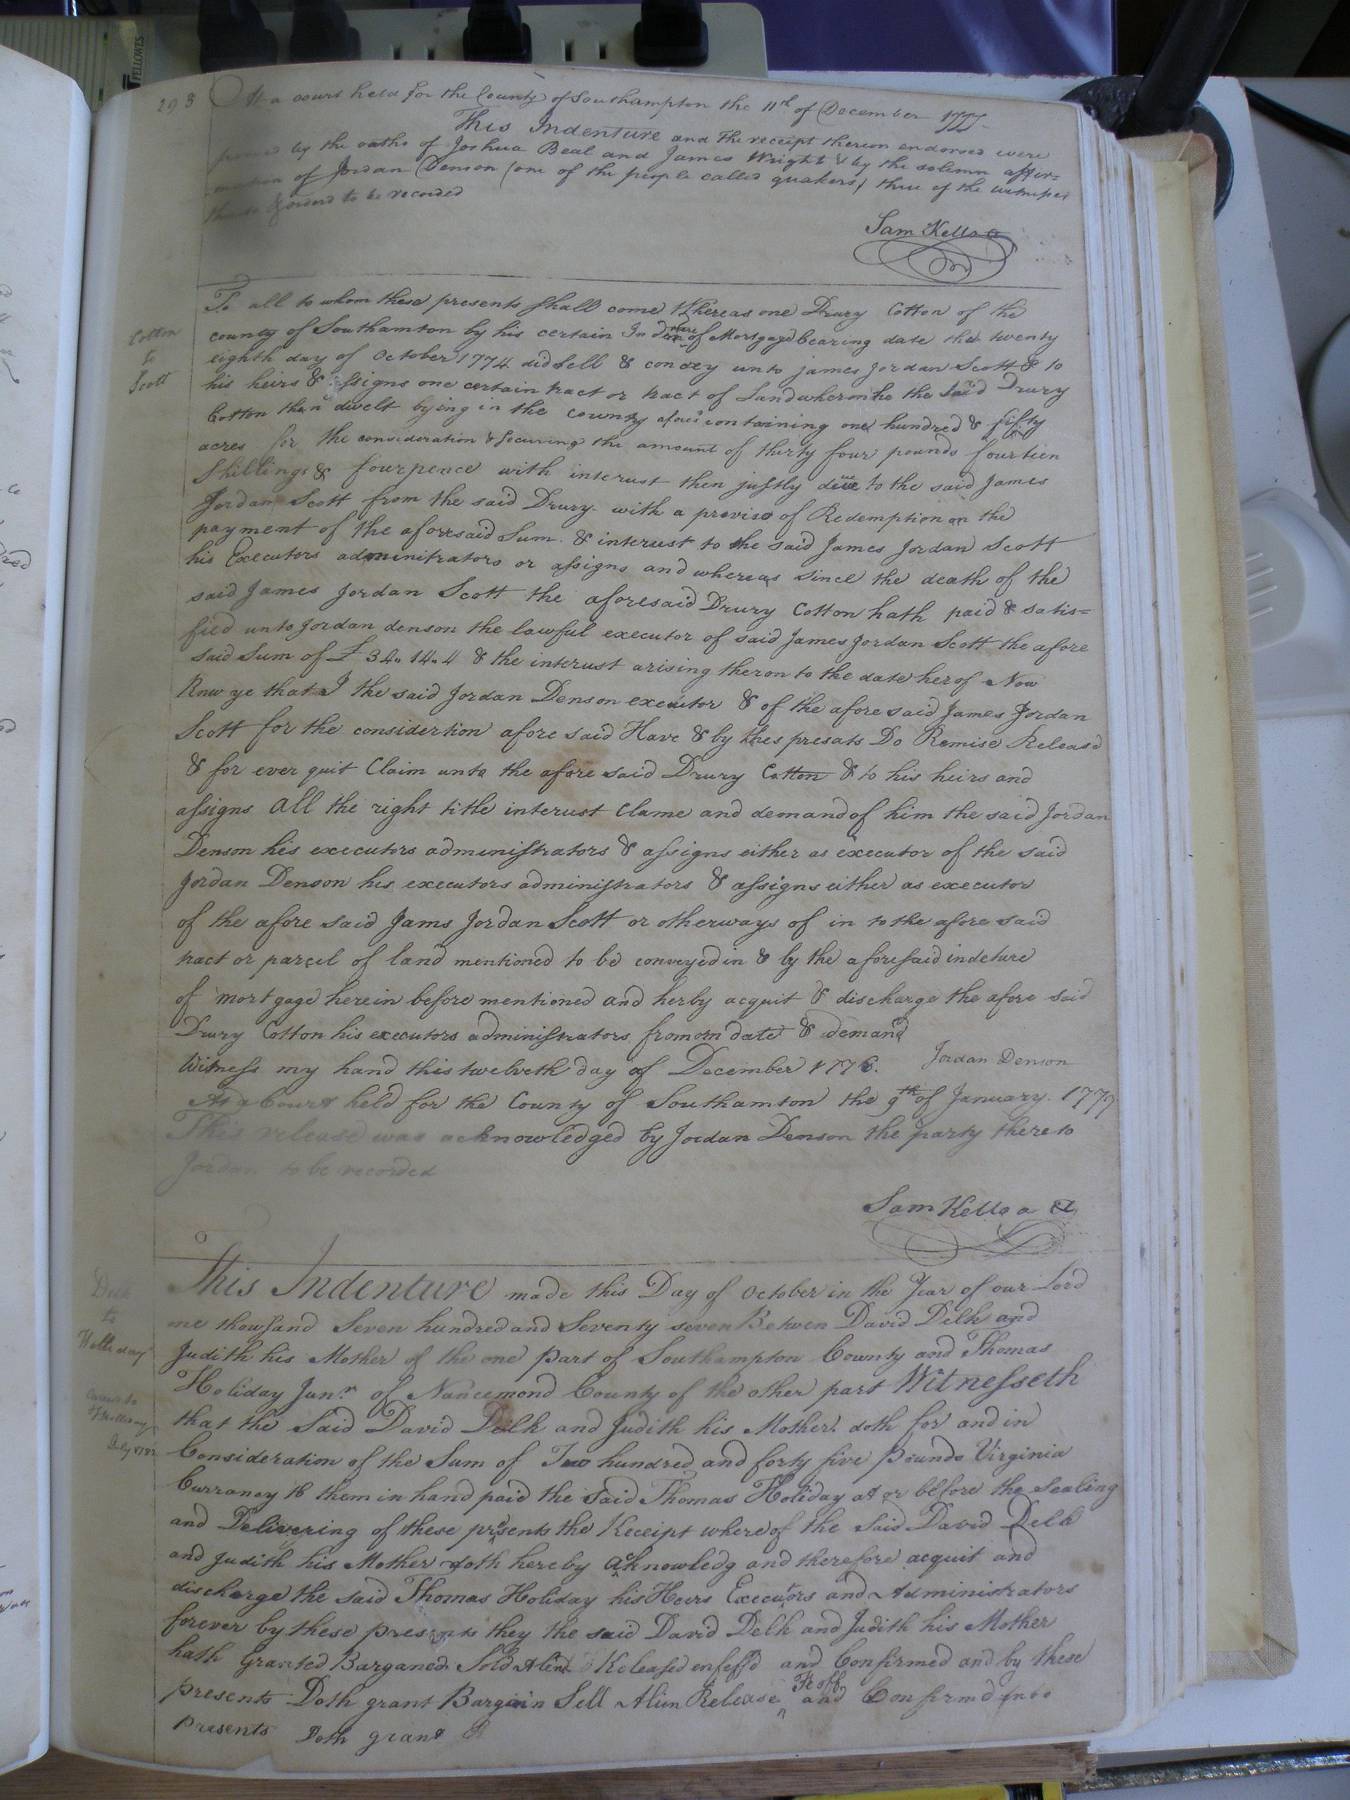 293
At a court held for the County of Southampton the 11th of December 1777
This Indenture and the receipt theron endorsed were
proved by the oaths of Joshua Beal and James Wright & by the solemn affir=
mation of Jordan Denson (one of the people called quakers) three of the witnesses
thereto & orderd to be recorded
Sam Kello
Cotton
to
Scott
To all to whom these presents shall come Whereas one Drury Cotton of the
county of Southamton by his certain Indenture of Mortgage bearing date the twenty
eighth day of October 1774 did sell & convey unto James Jordan Scott & to
his heirs & assigns one certain tract or tract of Land wheron he the said Drury
Cotton then dwelt bying in the county afores containing one hundred & fifty
acres for the consideration & securing the amount of thirty four pounds fourteen
Shillings & fourpence with interust then justly due to the said James
Jordan Scott from the said Drury with a proviso of Redemption on the
payment of the aforesaid Sum & interust to the said James Jordan Scott
his Executors adminitrators or assigns and whereas since the death of the
said James Jordan Scott the aforesaid Drury Cotton hath paid & satis=
fied unto Jordan denson the lawful executor of said James Jordan Scott the afore
said Sum of £34.14.4 & the interust arising theron to the date herof Now
Know ye that I the said Jordan Denson executor & of the afore said James Jordan
Scott for the considertion afore said Have & by thes presats Do Remise Releasd
& for ever quit Claim unto the afore said Drury Cotton & to his heirs and
assigns all the right title interust Clame and demand of him the said Jordan
Denson his executors administrators & assigns either as executor of the said
Jordan Denson his executors administrators & assigns either as executor
of the afore said Jams Jordan Scott or otherways of in to the afore said
tract or parcel of land mentioned to be conveyed in & by the aforesaid indeture
of mortgage herein before mentioned and herby acquit & discharge the afore said
Drury Cotton his executors administrators from date & demand
Witness my hand this twelveth day of December 1776. Jordan Denson
At a Court held for the County of Southamton the 9th of January 1777
This release was acknowledged by Jordan Denson the party there to
to be recorded
Sam Kello
Delk
to
Holleday
This Indenture made this Day of October in the Year of our Lord
one thousand Seven hundred and Seventy seven Between David Delk and
Judith his Mother of the one part of Southampton County and Thomas
Holiday Junr of Nancemond County of the other part Witnesseth
that the Said David Delk and Judith his Mother doth for and in
Consideration of the Sum of Two hundred and forty five Pounds Virginia
Curraney to them in hand paid the Said Thomas Holiday at or before the Sealing
and Delivering of these presents the Receipt whereof the Said David Delk
and Judith his Mother doth hereby acknowledg and therefore acquit and
discharge the said Thomas Holiday his Heirs Executors and Administrators
forever by these presents they the said David Delk and Judith his Mother
hath Granted Barganed Sold Alind Released enfeffd and Confirmed and by these
presents Doth grant Bargain Sell Alien Release Feoff and Confirmd unto
presents Doth grant